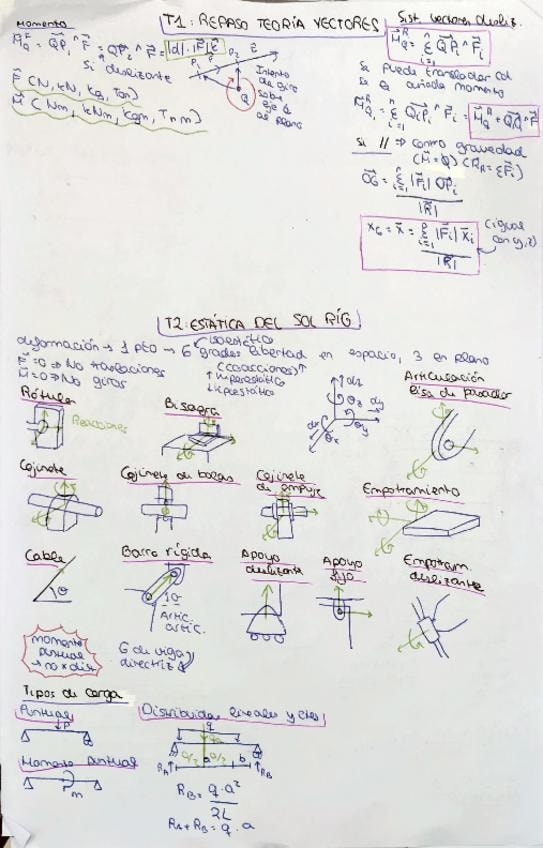 T1: REPASO TEORÍA VECTORES
Momento
M_Q^F = QP₁ ^ F = QP₂ ^ F = |d|·|F| ê
Si deslizante
F (N, kN, kg, Ton)
M (Nm, kNm, kgm, Tnm)
P₁ F P₂
Q
Intento
de giro
sobre
eje Q
al plano
Sist. vectores desliz.
M_Q^R = Σ_{i=1}^n QP_i ^ F_i
Se puede trasladar
se añade momento
M_{Q₁}^R = Σ_{i=1}^n Q₁P_i ^ F_i = M_Q^R + Q₁Q ^ F
Si // ⇒ centro gravedad
(M=0) (R_R = ΣF_i)
OG = Σ_{i=1}^n |F_i| OP_i / |R|
x_G = x̄ = Σ_{i=1}^n |F_i| x_i / |R|
(igual con y, z)
T2: ESTÁTICA DEL SOL RÍG
deformación → 1 pto → 6 grados libertad en espacio, 3 en plano
isostático
F=0 ⇒ No traslaciones
(coacciones)↑
M=0 ⇒ No giros
↑ hiperestático
↓ hipostático
dz
θz
dy
dx
θx
θy
Rótula
Reacciones
Bisagra
Articulación
lisa de pasador
Cojinete
Cojinete de bolas
Cojinete
de empuje
Empotramiento
Cable
θ
Barra rígida
θ
Artic.
artic.
Apoyo
deslizante
Apoyo
fijo
Empotram.
deslizante
momento
puntual
→ no x dist
G de viga
directriz
Tipos de carga
Puntual
P
Distribuidas lineales y ctes
q
a/2 a/2 b
R_A R_B
Momento puntual
m
R_B = q·a² / 2L
R_A + R_B = q·a